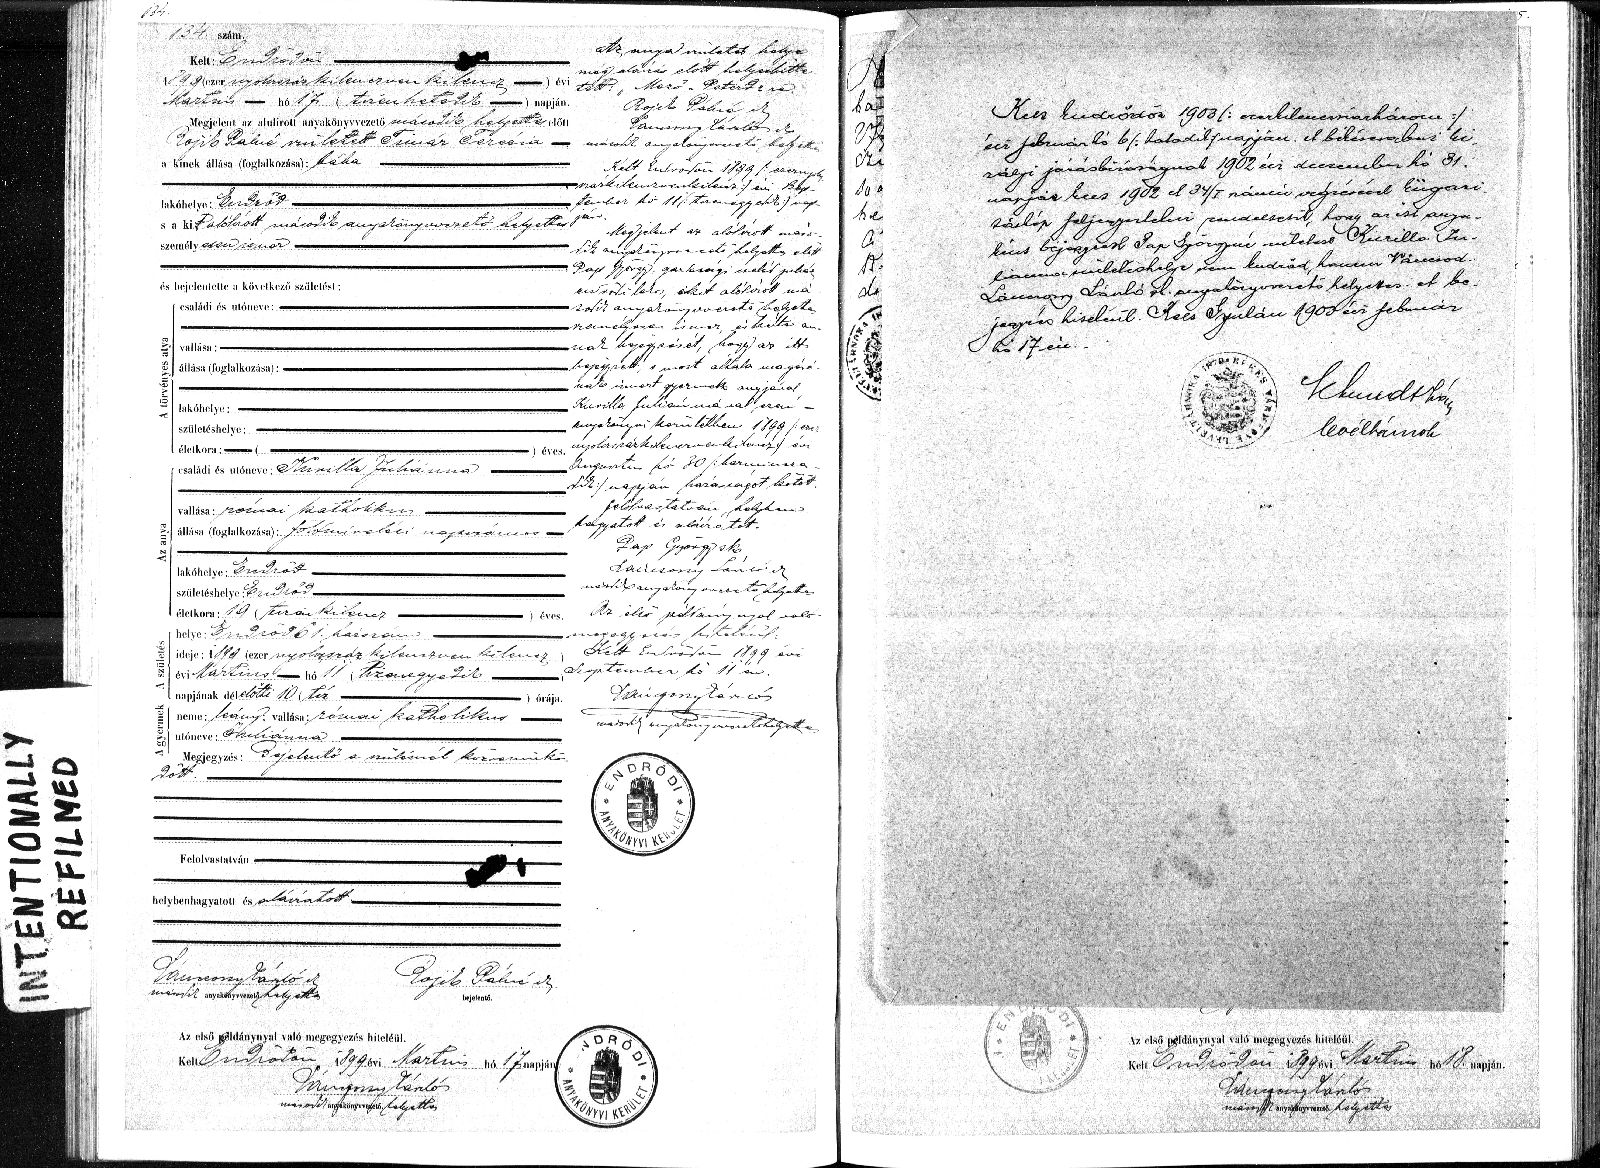 134.
134. szám.
Kelt: Endrődön
1899 (ezernyolcszázkilenczvenkilencz) évi
Martius hó 17 (tizenhetedik) napján.
Megjelent az alulirott anyakönyvvezető második helyettes előtt
Rojik Pálné született Timár Terézia
a kinek állása (foglalkozása): bába
lakóhelye: Endrőd
s a kit alólirott második anyakönyvvezető helyettes
személyesen ismer
és bejelentette a következő születést:
A törvényes atya
családi és utóneve:
vallása:
állása (foglalkozása):
lakóhelye:
születéshelye:
életkora: ( ) éves.
Az anya
családi és utóneve: Kurilla Juliánna
vallása: római katholikus
állása (foglalkozása): földmivelési napszámos
lakóhelye: Endrőd
születéshelye: Endrőd
életkora: 19 (tizenkilencz) éves.
A születés
helye: Endrőd 61. házszám
ideje: 1899 (ezernyolcszázkilenczvenkilencz)
évi Martius hó 11 (tizenegyedik)
napjának délelőtti 10 (tíz) órája.
A gyermek
neme: leány. vallása: római katholikus
utóneve: Juliánna
Megjegyzés: Bejelentő a szülésnél közreműkö-
dött
Felolvastatván
helybenhagyatott és aláiratott
második anyakönyvvezető helyettes
Rojik Pálné
bejelentő.
Az első példánynyal való megegyezés hiteléül.
Kelt Endrődön 1899 évi Martius hó 17 napján
második anyakönyvvezető helyettes
ENDRŐDI ANYAKÖNYVI KERÜLET
Az anya születés helye
meg aláirás előtt helyesbitte
tett: „Mező-
Rojik Pálné
második anyakönyvvezető helyettes
Kelt Endrődön 1899 (: ezernyolcz-
százkilenczvenkilencz :) évi Szep-
tember hó 11 (: tizenegyedik :) nap-
ján.
Megjelent az alólirott máso-
dik anyakönyvvezető helyettes előtt
Pap György, gazdasági cseléd
endrődi lakos, akit alólirott má
sodik anyakönyvvezető helyettes
személyesen ismer, és kérte an-
nak bejegyzését, hogy az itt
bejegyzett, s most általa magáé-
nak ismert gyermek anyjával
Kurilla Juliánnával, ezen
anyakönyvi kerületben 1899 (: ezer
nyolcszázkilenczvenkilencz :) évi
Augusztus hó 30 (: harmincza-
dik :) napján házasságot kötött.
Felolvastatván, helyben
hagyatott és aláiratott.
Pap György sk
második anyakönyvvezető helyettes
Az első példánynyal való
megegyezés hiteléül.
Kelt Endrődön 1899 évi
September hó 11 én.
második anyakönyvvezető helyettes
ENDRŐDI ANYAKÖNYVI KERÜLET
5.
Kelt Endrődön 1903 (: ezerkilencszázhárom :)
évi február hó 6 (: hatodik) napján. A békésmegyei ki-
rályi járásbiróságnak 1902 évi deczember hó 31
napján kelt 1902 34/I számú végzésével kiigazi-
tásképp feljegyeztetni rendeltetett, hogy az itt anya-
ként bejegyzett Pap Györgyné született Kurilla Ju-
lianna születéshelye nem Endrőd, hanem
László sk. anyakönyvvezető helyettes. A be-
jegyzés hiteléül. Kelt Gyulán 1903 évi február
hó 17 én.
levéltárnok
Az első példánynyal való megegyezés hiteléül.
Kelt Endrődön 1899 évi Martius hó 18. napján.
második anyakönyvvezető helyettes
INTENTIONALLY
REFILMED